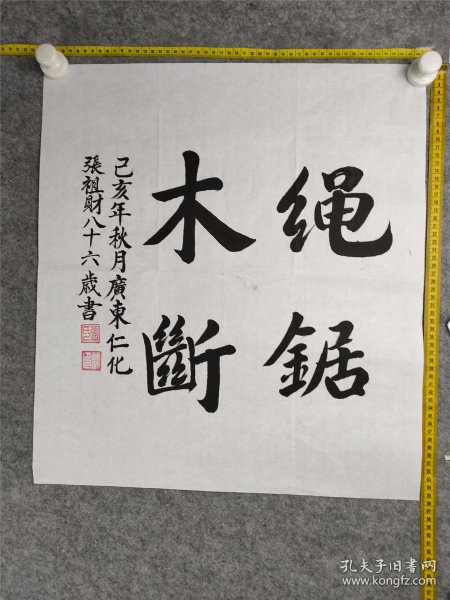 绳锯
木斷
己亥年秋月廣東仁化
張祖財八十六歲書
孔夫子旧书网
www.kongfz.com